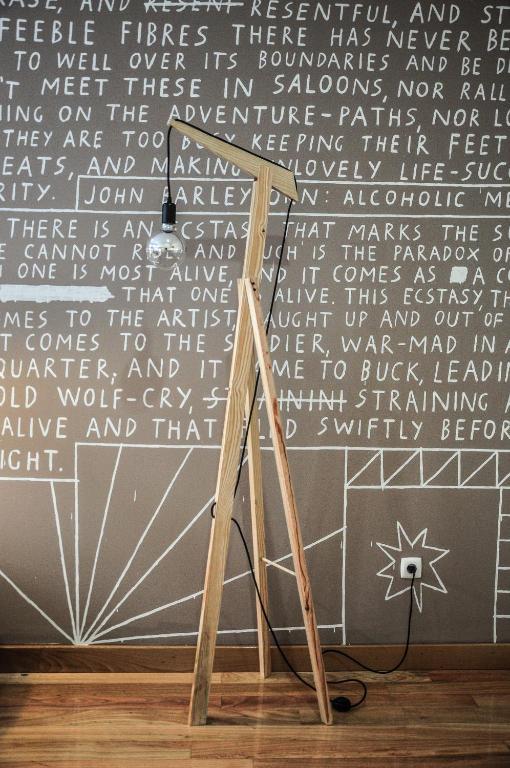 AND RESENT RESENTFUL, AND ST
FEEBLE FIBRES THERE HAS NEVER BE
TO WELL OVER ITS BOUNDARIES AND BE D
'T MEET THESE IN SALOONS, NOR RALL
ING ON THE ADVENTURE-PATHS, NOR LO
THEY ARE TOO BUSY KEEPING THEIR FEET
EATS, AND MAKING UNLOVELY LIFE-SUCC
RITY. JOHN BARLEYCORN: ALCOHOLIC ME
THERE IS AN ECSTASY THAT MARKS THE SU
E CANNOT RISE. AND SUCH IS THE PARADOX OF
ONE IS MOST ALIVE, AND IT COMES AS A CO
THAT ONE ALIVE. THIS ECSTASY, TH
OMES TO THE ARTIST, CAUGHT UP AND OUT OF
T COMES TO THE SOLDIER, WAR-MAD IN A
QUARTER, AND IT CAME TO BUCK, LEADIN
OLD WOLF-CRY, STRAINING A
ALIVE AND THAT FLED SWIFTLY BEFOR
IGHT.